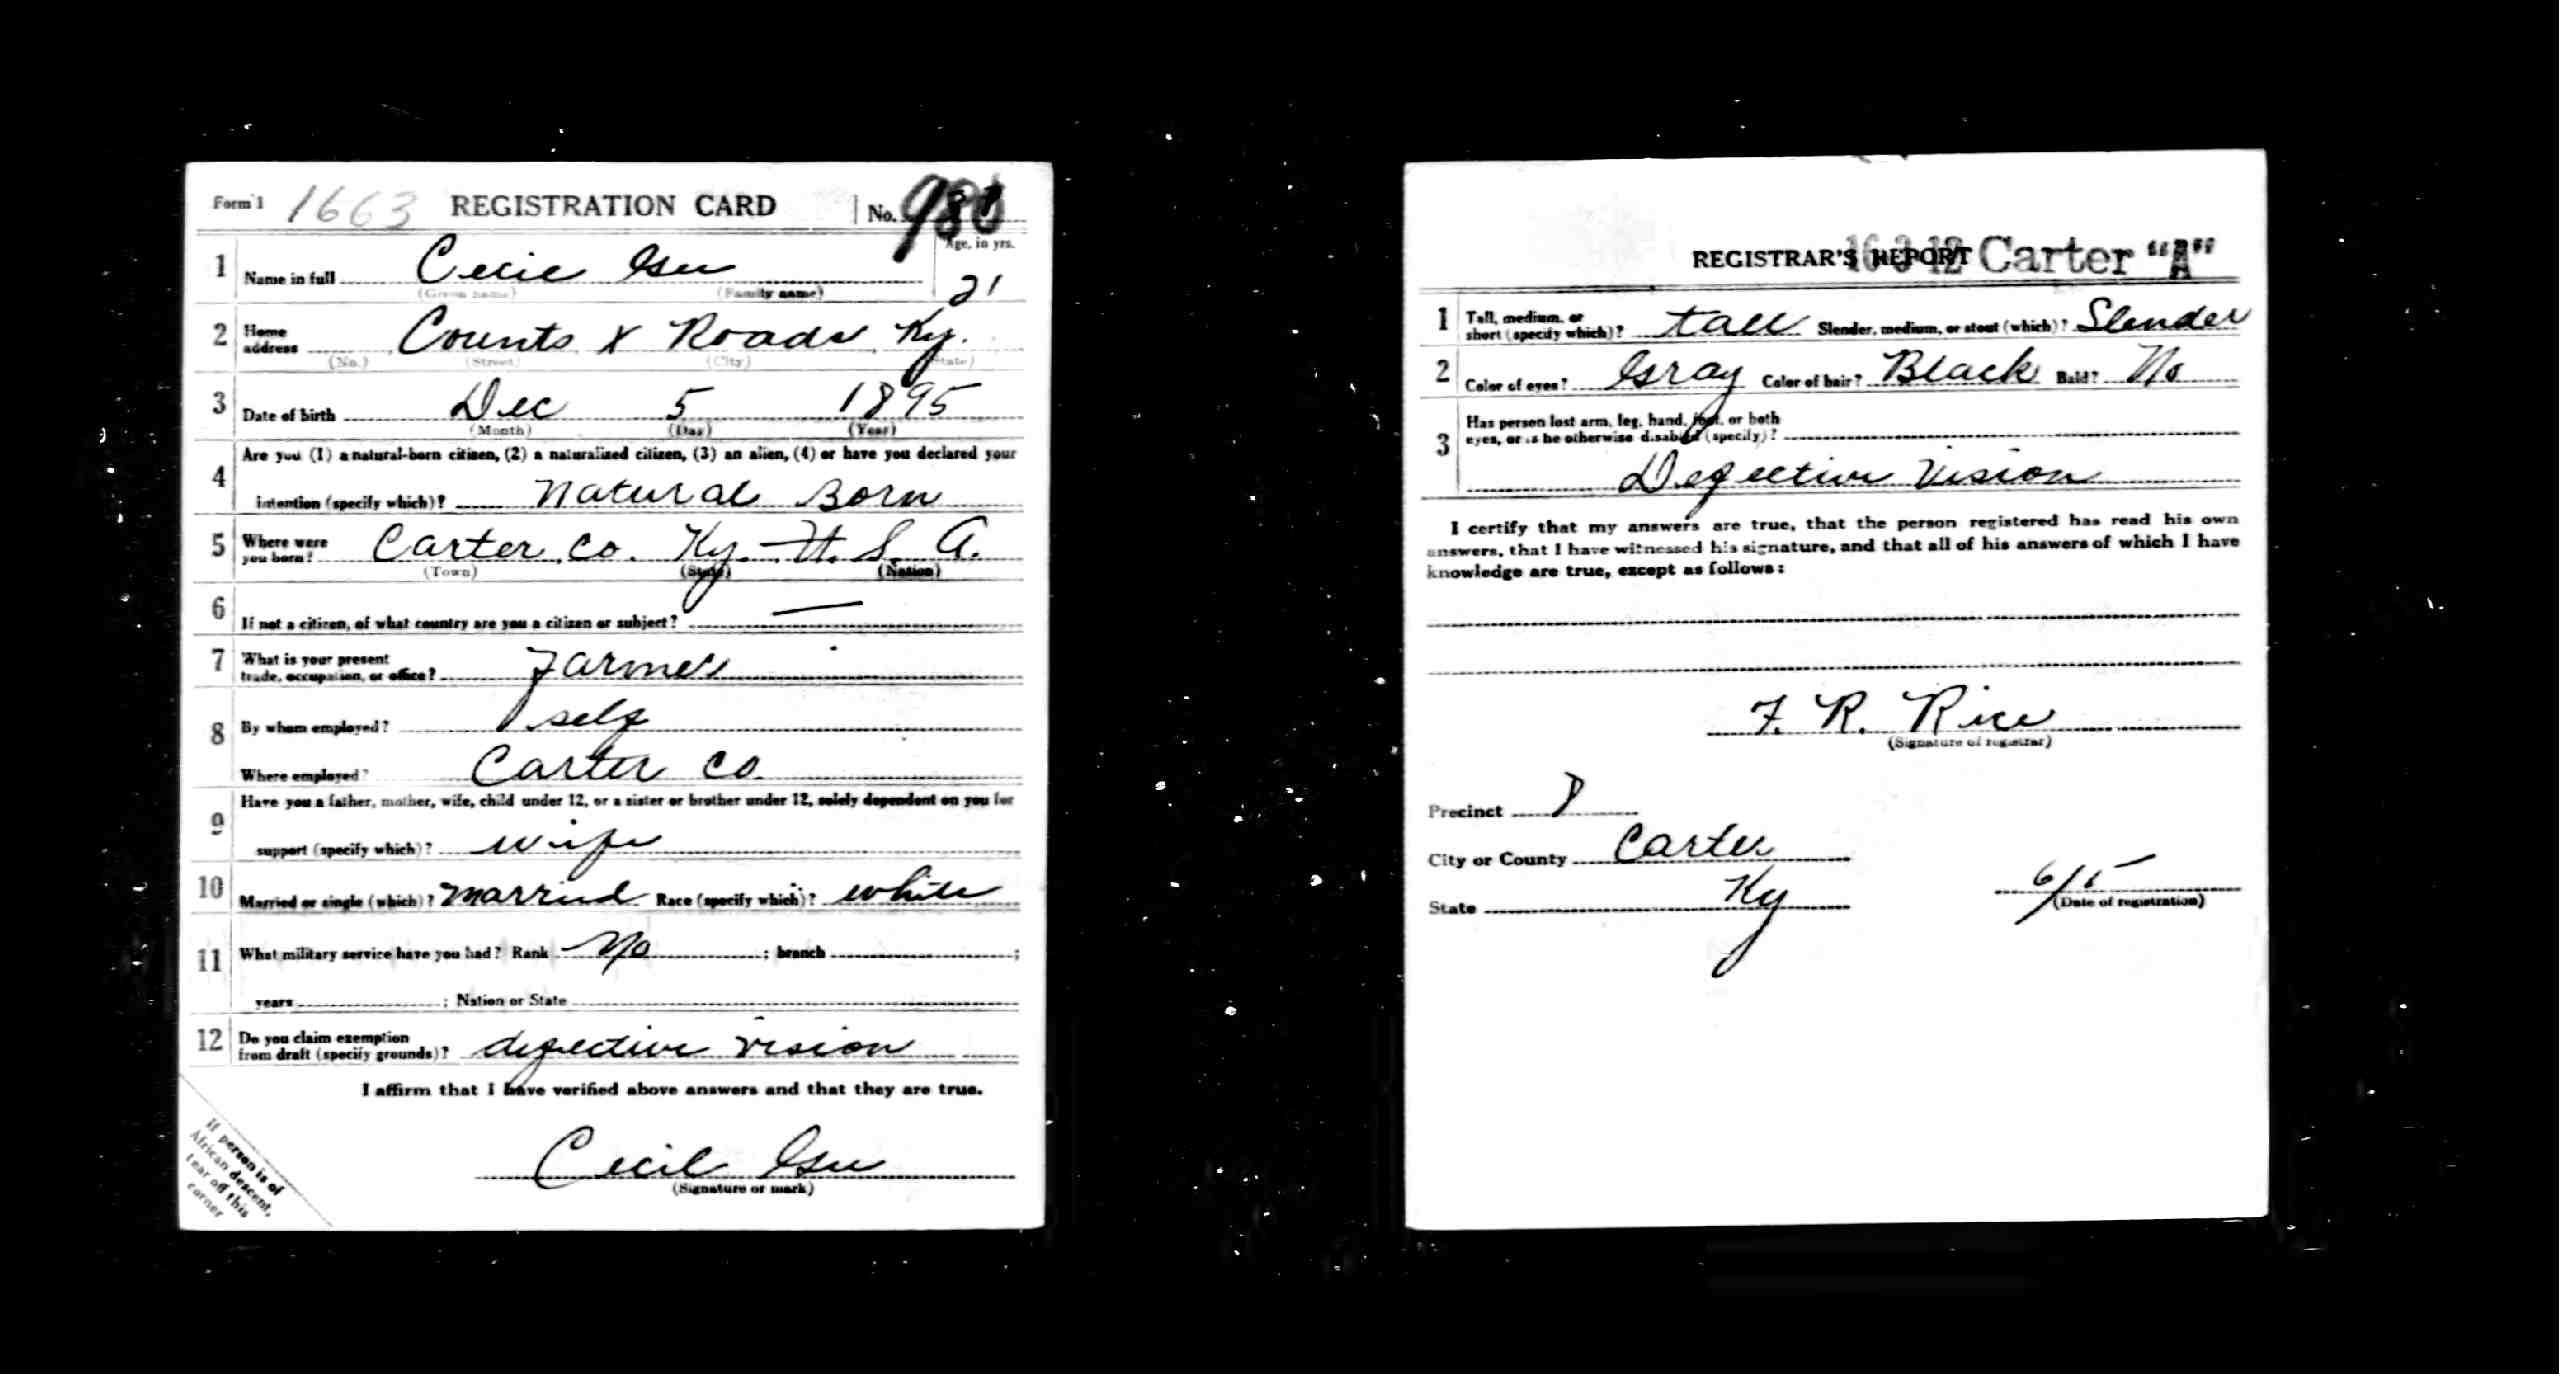 Form 1 1663 REGISTRATION CARD No. 98
Age, in yrs.
1 Name in full Cecil Gee 21
(Given name) (Family name)
2 Home address Counts X Roads Ky.
(No.) (Street) (City) (State)
3 Date of birth Dec 5 1895
(Month) (Day) (Year)
4 Are you (1) a natural-born citizen, (2) a naturalized citizen, (3) an alien, (4) or have you declared your
intention (specify which)? Natural Born
5 Where were you born? Carter Co. Ky. U. S. A.
(Town) (State) (Nation)
6 If not a citizen, of what country are you a citizen or subject? —
7 What is your present trade, occupation, or office? Farmer
8 By whom employed? self
Where employed? Carter Co
9 Have you a father, mother, wife, child under 12, or a sister or brother under 12, solely dependent on you for
support (specify which)? wife
10 Married or single (which)? Married Race (specify which)? white
11 What military service have you had? Rank No ; branch ;
years ; Nation or State
12 Do you claim exemption from draft (specify grounds)? defective vision
I affirm that I have verified above answers and that they are true.
Cecil Gee
(Signature or mark)
If person is of
African descent,
tear off this
corner
REGISTRAR'S REPORT 16-3-12 Carter "A"
1 Tall, medium, or short (specify which)? tall Slender, medium, or stout (which)? Slender
2 Color of eyes? Gray Color of hair? Black Bald? No
3 Has person lost arm, leg, hand, foot, or both
eyes, or is he otherwise disabled (specify)?
Defective Vision
I certify that my answers are true, that the person registered has read his own
answers, that I have witnessed his signature, and that all of his answers of which I have
knowledge are true, except as follows:
F. R. Rice
(Signature of registrar)
Precinct 8
City or County Carter
State Ky 6/5
(Date of registration)